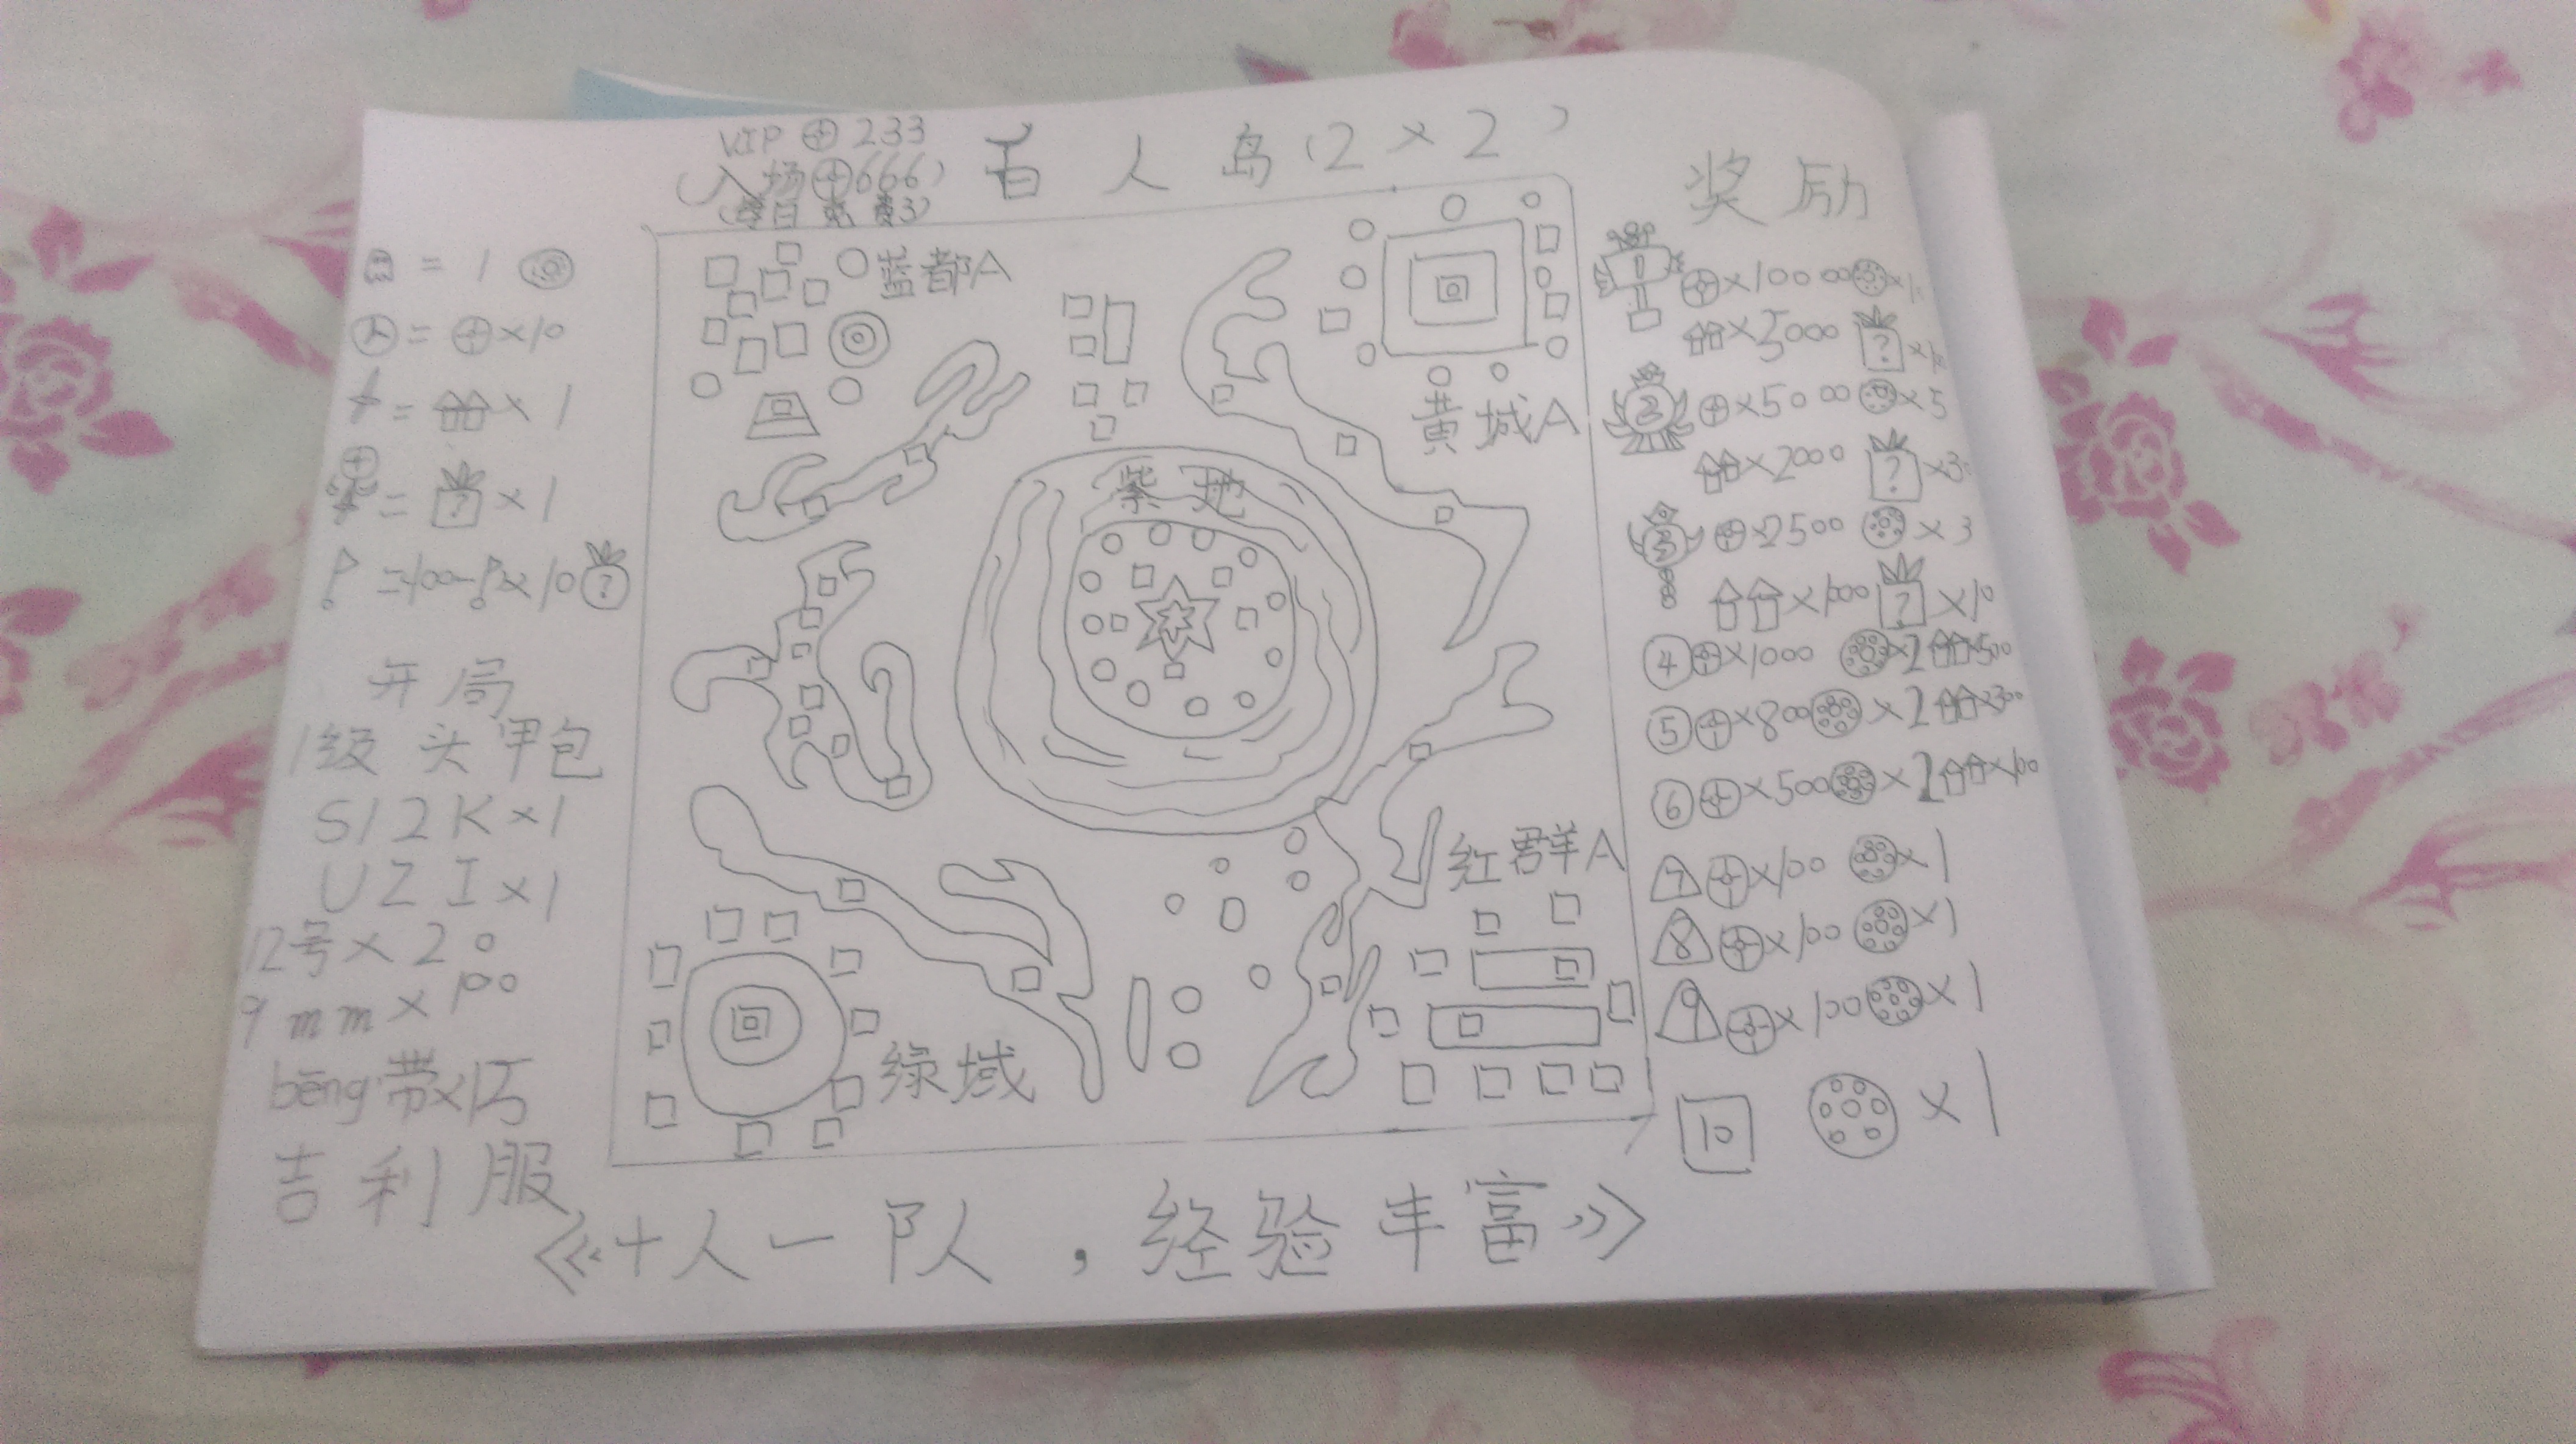 VIP 233
(入场 666)
百人岛(2×2)
= 1
= ×10
= ×1
= ? ×1
×10 ?
开局
1级 头甲包
S12K×1
UZI×1
12号×20
9mm×100
bēng带×15
吉利服
蓝都A
黄城A
紫地
红群A
绿域
奖励
1 ×10000
×5000 ?
2 ×5000 ×5
×2000 ?
3 ×2500 ×3
×1000 ? ×10
④ ×1000 ×2 ×500
⑤ ×800 ×2 ×300
⑥ ×500 ×2 ×100
7 ×100 ×1
8 ×100 ×1
9 ×100 ×1
10 ×1
《十人一队，经验丰富》